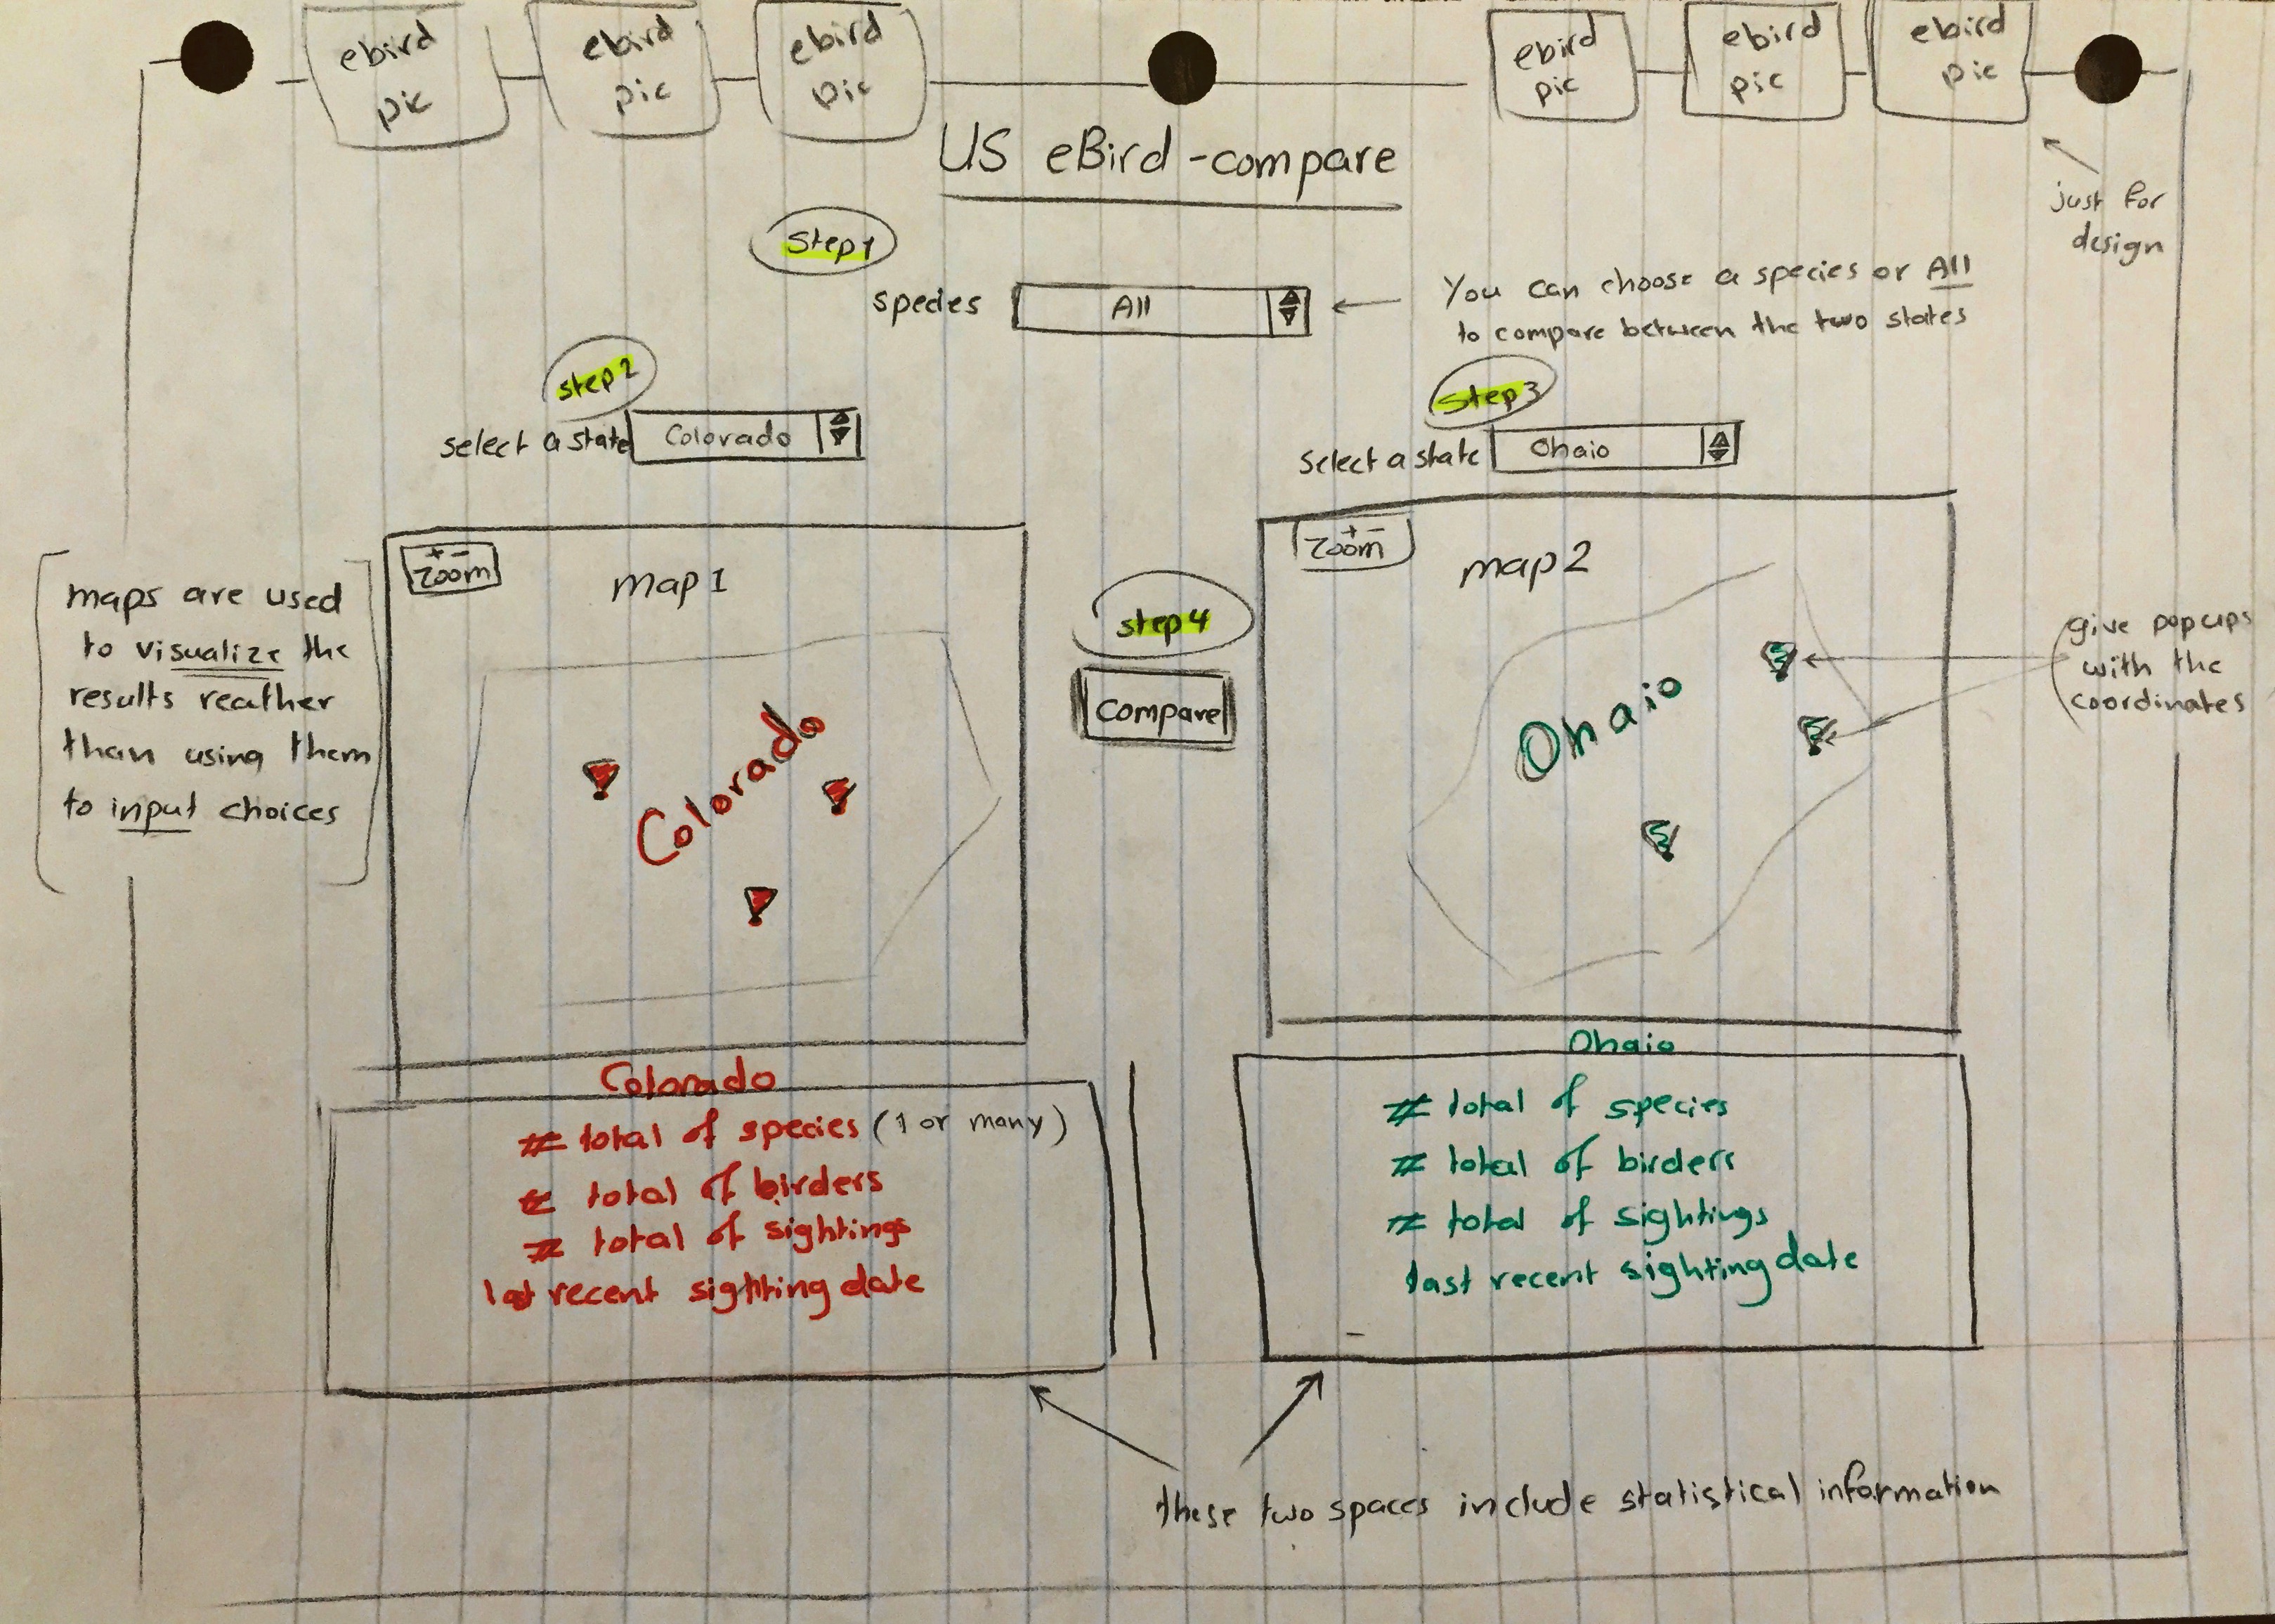 ebird
pic
ebird
pic
ebird
pic
ebird
pic
ebird
pic
ebird
pic
US eBird-compare
just for
design
Step1
species All
You can choose a species or All
to compare between the two states
step2
select a state Colorado
Step3
Select a state Ohaio
maps are used
to visualize the
results reather
than using them
to input choices
+ -
Zoom
map 1
Colorado
step4
Compare
+ -
Zoom
map 2
Ohaio
give popups
with the
coordinates
Colorado
# total of species (1 or many)
# total of birders
# total of sightings
last recent sighting date
Ohaio
# total of species
# total of birders
# total of sightings
last recent sighting date
these two spaces include statistical information